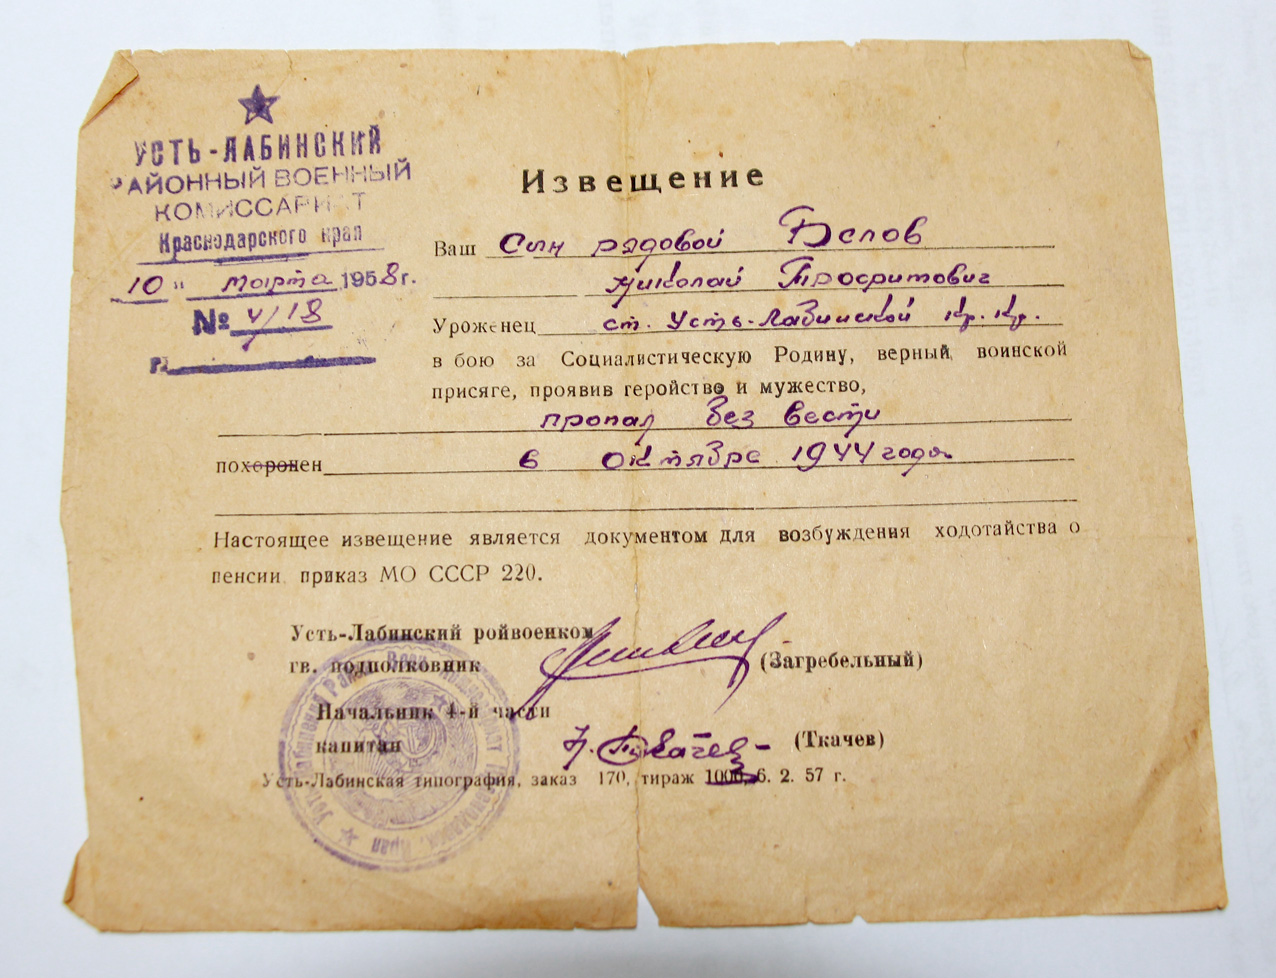 УСТЬ-ЛАБИНСКИЙ
РАЙОННЫЙ ВОЕННЫЙ
КОМИССАРИАТ
Краснодарского края
10 " марта 1958 г.
№ 4/18
Извещение
Ваш Сын рядовой Белов
Николай Трофимович
Уроженец ст. Усть-Лабинской Кр. Кр.
в бою за Социалистическую Родину, верный воинской
присяге, проявив геройство и мужество,
пропал без вести
похоронен 6 октября 1944 года.
Настоящее извещение является документом для возбуждения ходотайства о
пенсии приказ МО СССР 220.
Усть-Лабинский ройвоенком
гв. подполковник (Загребельный)
Начальник 4-й части
капитан Ткачев (Ткачев)
Усть-Лабинская типография, заказ 170, тираж 1000, 6. 2. 57 г.